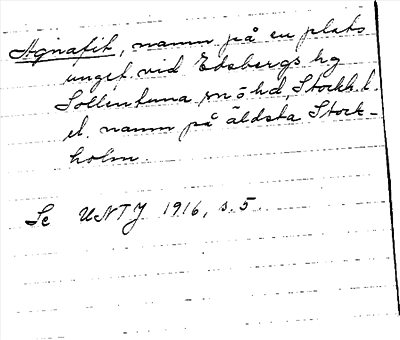 Agnafit, namn på en plats
ungef. vid Edsbergs hg
Sollentuna sn o hd, Stockh. l.
el. namn på äldsta Stock-
holm.
Se UNTJ 1916, s. 5.